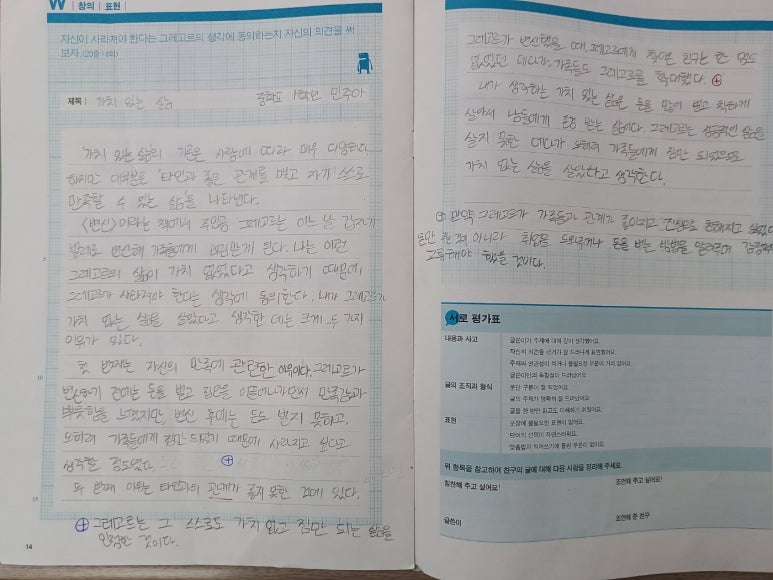 W | 창의 | 표현
자신이 사라져야 한다는 그레고르의 생각에 동의하는지 자신의 의견을 써
보자. (20줄 내외)
제목 | 가치 있는 삶 중학교 1학년 민주아
'가치 있는 삶'의 기준은 사람에 따라 매우 다양하다.
하지만 대부분은 '타인과 좋은 관계를 맺고 자기 스스로
만족할 수 있는 삶'을 나타낸다.
<변신>이라는 책에서 주인공 그레고르는 어느 날 갑자기
벌레로 변신해 가족들에게 버림받게 된다. 나는 이런
그레고르의 삶이 가치 없었다고 생각하기 때문에,
그레고르가 사라져야 한다는 생각에 동의한다. 내가 그레고르가
가치 없는 삶을 살았다고 생각한 데는 크게 두 가지
이유가 있다.
첫 번째는 자신의 만족에 관련한 이유이다. 그레고르가
변신하기 전에는 돈을 벌고 집안을 이끌어나가면서 만족감과
뿌듯함을 느꼈지만, 변신 후에는 돈도 벌지 못하고,
오히려 가족들에게 짐만 되었기 때문에 사라지고 싶다고
생각할 정도였다.
두 번째 이유는 타인과의 관계가 좋지 못한 것에 있다.
그레고르는 그 스스로도 가치 없고 짐만 되는 삶을
인정한 것이다.
5
10
15
14
그레고르가 변신했을 때, 그레고르에게 찾아온 친구는 한 명도
없었던 데다가, 가족들도 그레고르를 학대했다.
내가 생각하는 가치 있는 삶은 돈을 많이 벌고 착하게
살아서 남들에게 존경 받는 삶이다. 그레고르는 성공적인 삶을
살지 못한 데다가 오히려 가족들에게 짐만 되었으므로
가치 없는 삶을 살았다고 생각한다.
만약 그레고르가 가족들과 관계가 좋아지고 진심으로 친해지고 싶었다면
돈만 줄 것이 아니라 취업을 도와주거나 돈을 버는 방법을 알려주며
교류해야 했을 것이다.
서로 평가표
내용과 사고
글쓴이가 주제에 대해 깊이 생각했어요.
자신의 의견을 근거가 잘 드러나게 표현했어요.
주제와 연관성이 적거나 불필요한 부분이 거의 없어요.
글쓴이만의 독창성이 드러났어요.
글의 조직과 형식
문단 구분이 잘 되었어요.
글의 주제가 명확히 잘 드러났어요.
글을 한 번만 읽고도 이해하기 쉬웠어요.
표현
문장에 불필요한 표현이 없어요.
단어의 선택이 자연스러워요.
맞춤법과 띄어쓰기에 틀린 부분이 없어요.
위 항목을 참고하여 친구의 글에 대해 다음 사항을 정리해 주세요.
칭찬해 주고 싶어요! 조언해 주고 싶어요!
글쓴이 조언해 준 친구